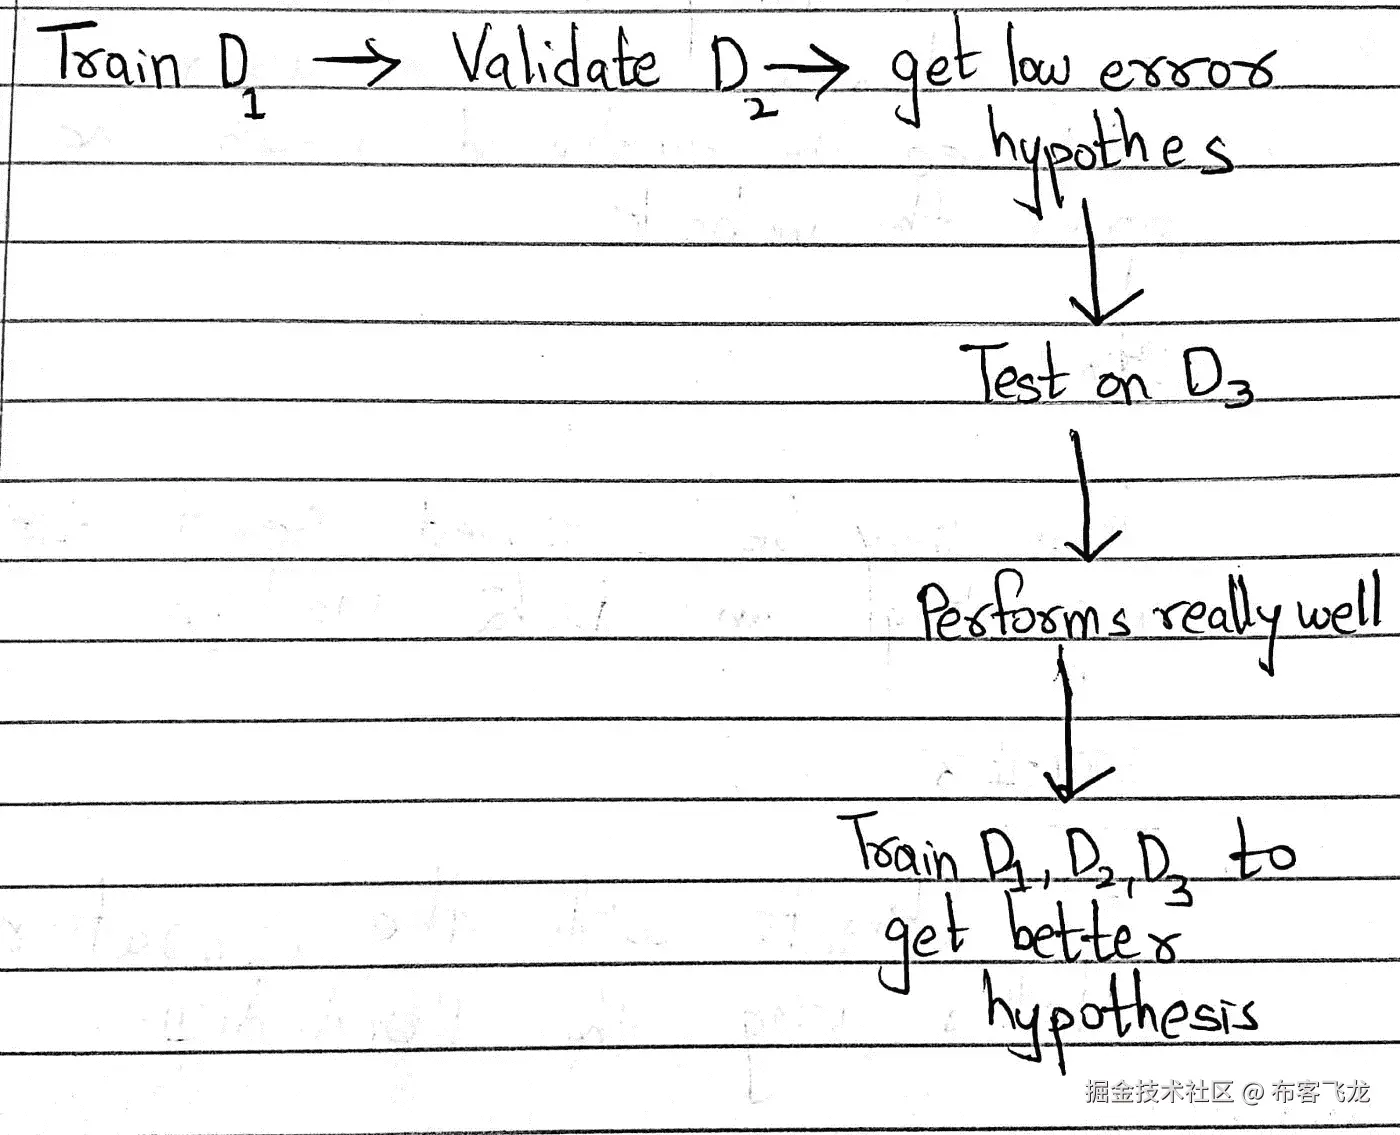 Train D₁ → Validate D₂ → get low error
hypothes
↓
Test on D₃
↓
Performs really well
↓
Train D₁, D₂, D₃ to
get better
hypothesis
掘金技术社区 @ 布客飞龙